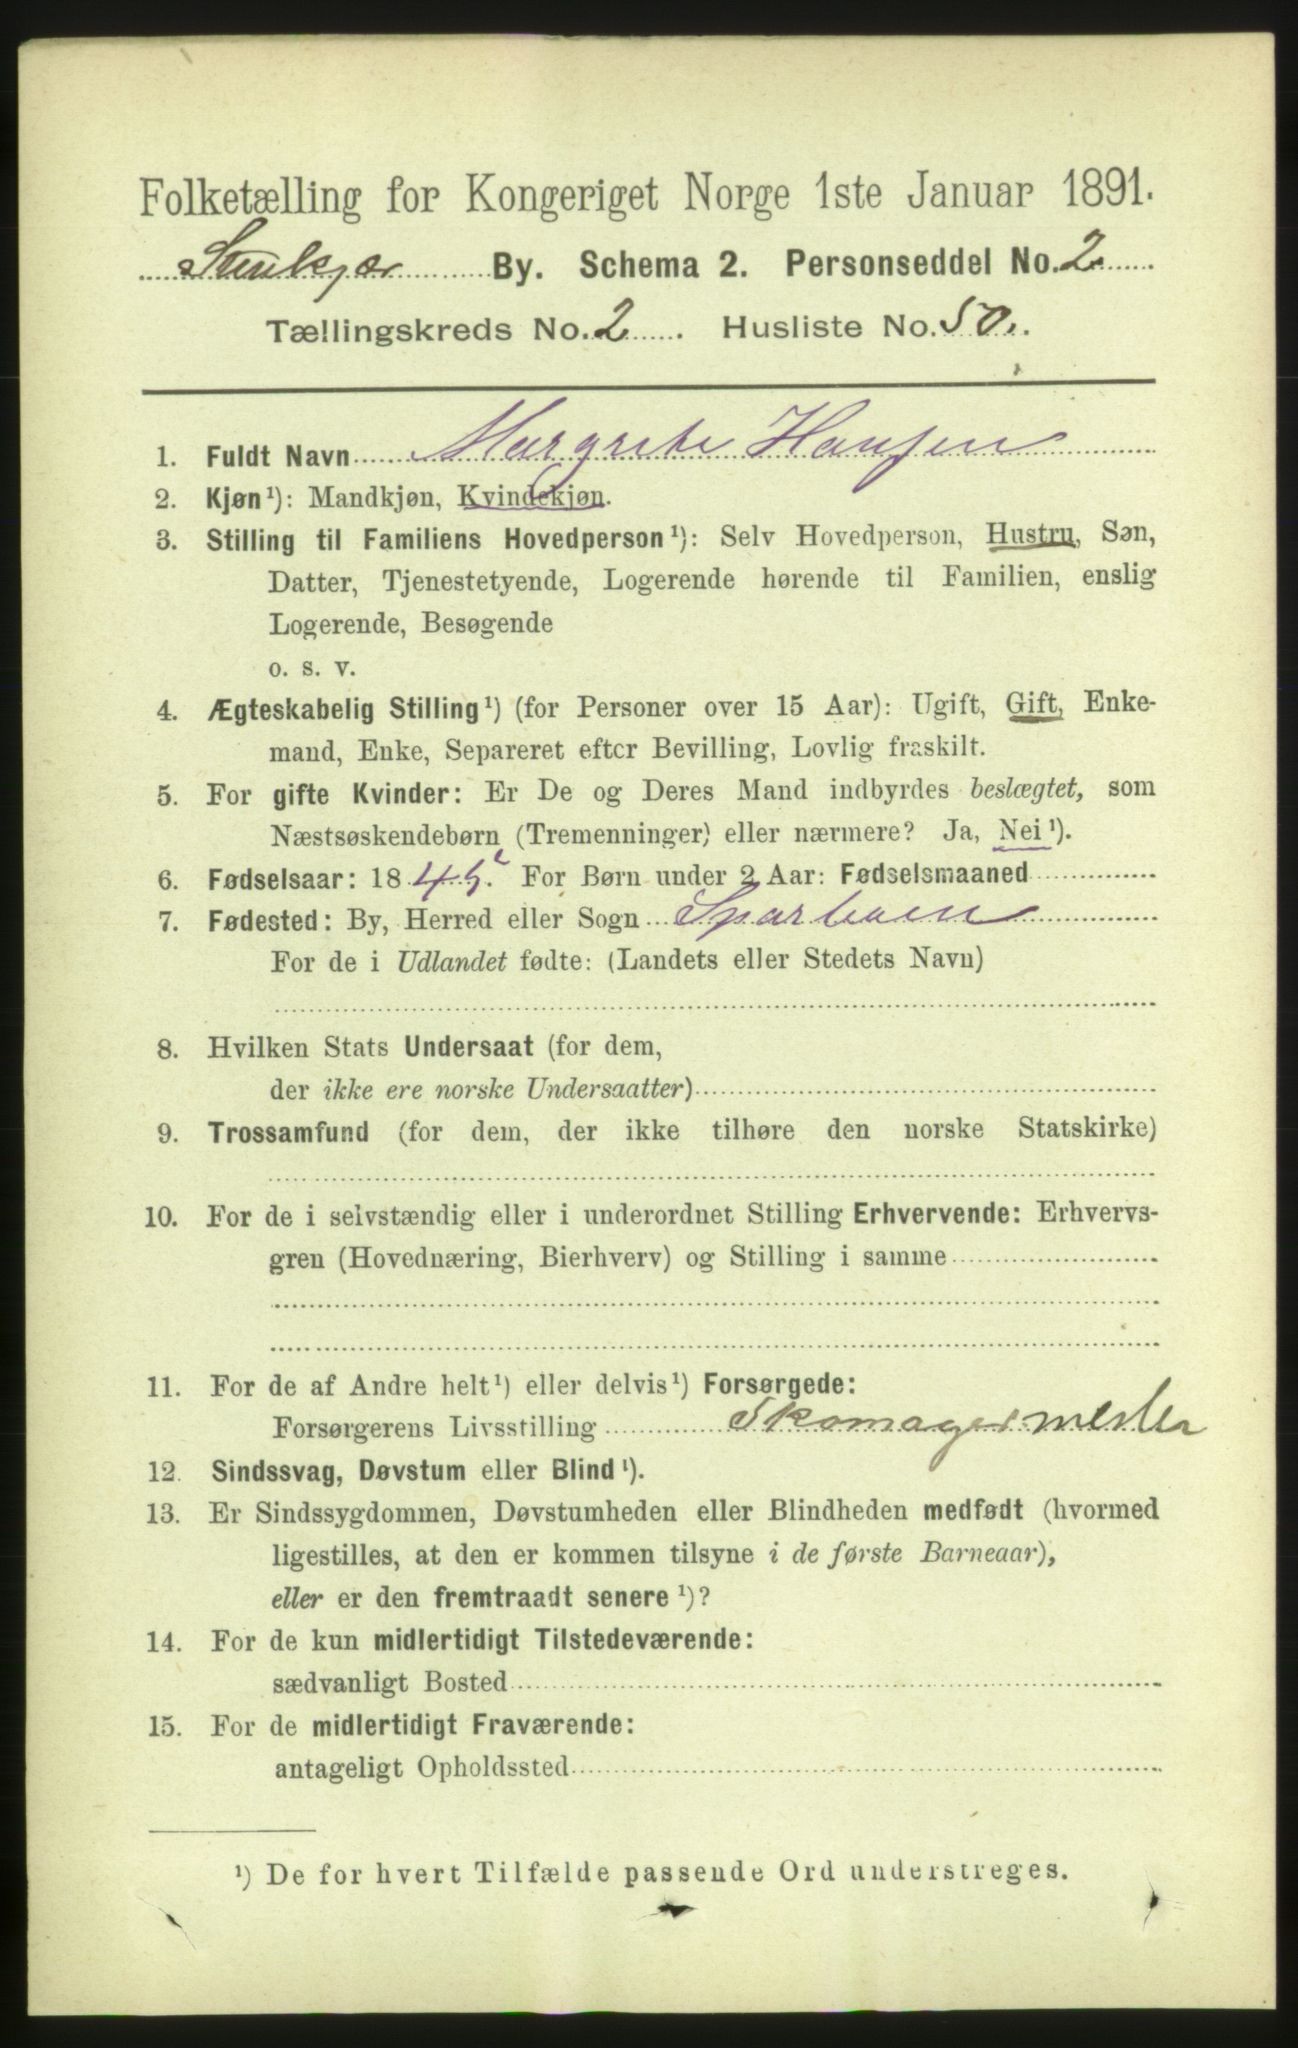 Folketælling for Kongeriget Norge 1ste Januar 1891.
Stenkjær By. Schema 2. Personseddel No. 2
Tællingskreds No. 2 Husliste No. 50.
1. Fuldt Navn Margrete Hansen
2. Kjøn¹): Mandkjøn, Kvindekjøn.
3. Stilling til Familiens Hovedperson¹): Selv Hovedperson, Hustru, Søn,
Datter, Tjenestetyende, Logerende hørende til Familien, enslig
Logerende, Besøgende
o. s. v.
4. Ægteskabelig Stilling¹) (for Personer over 15 Aar): Ugift, Gift, Enke-
mand, Enke, Separeret efter Bevilling, Lovlig fraskilt.
5. For gifte Kvinder: Er De og Deres Mand indbyrdes beslægtet, som
Næstsøskendebørn (Tremenninger) eller nærmere? Ja, Nei¹).
6. Fødselsaar: 1845. For Børn under 2 Aar: Fødselsmaaned
7. Fødested: By, Herred eller Sogn Sparbuen
For de i Udlandet fødte: (Landets eller Stedets Navn)
8. Hvilken Stats Undersaat (for dem,
der ikke ere norske Undersaatter)
9. Trossamfund (for dem, der ikke tilhøre den norske Statskirke)
10. For de i selvstændig eller i underordnet Stilling Erhvervende: Erhvervs-
gren (Hovednæring, Bierhverv) og Stilling i samme
11. For de af Andre helt¹) eller delvis¹) Forsørgede:
Forsørgerens Livsstilling Skomagermester
12. Sindssvag, Døvstum eller Blind¹).
13. Er Sindssygdommen, Døvstumheden eller Blindheden medfødt (hvormed
ligestilles, at den er kommen tilsyne i de første Barneaar),
eller er den fremtraadt senere¹)?
14. For de kun midlertidigt Tilstedeværende:
sædvanligt Bosted
15. For de midlertidigt Fraværende:
antageligt Opholdssted
¹) De for hvert Tilfælde passende Ord understreges.